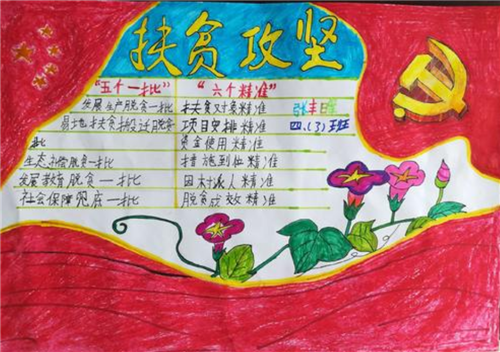 扶贫攻坚
"五个一批" "六个精准"
发展生产脱贫一批 扶贫对象精准 张丰
易地扶贫搬迁脱贫 项目安排精准 四、(3)班
批 资金使用精准
生态补偿脱贫一批 措施到位精准
发展教育脱贫一批 因村派人精准
社会保障兜底一批 脱贫成效精准